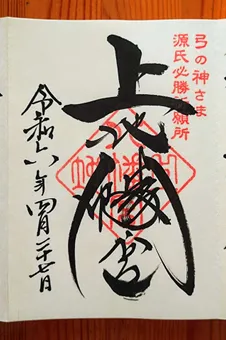 弓の神さま
源氏必勝祈願所
上八幡宮
令和六年四月二十七日